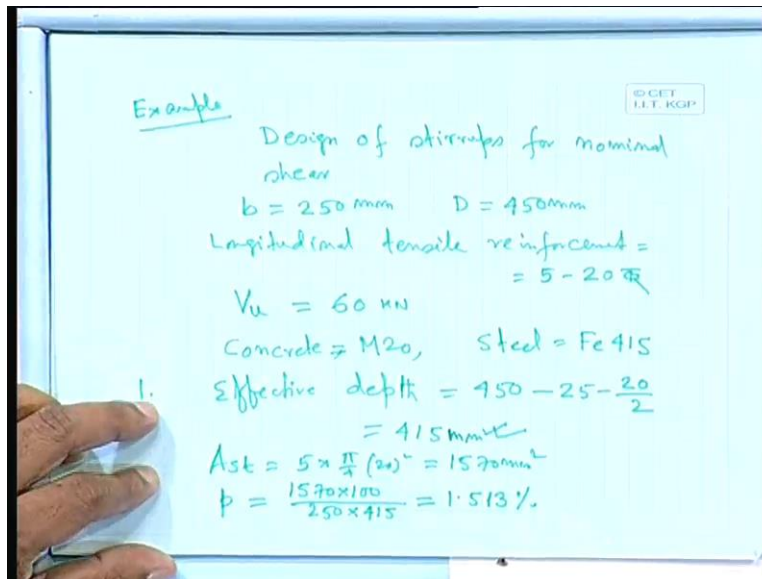 Example
© CET
I.I.T. KGP
Design of stirrups for nominal
shear
b = 250 mm D = 450mm
Longitudinal tensile reinforcement =
= 5 - 20
Vu = 60 KN
Concrete = M20, Steel = Fe 415
1. Effective depth = 450 - 25 - 20/2
= 415mm
Ast = 5 x π/4 (20)² = 1570mm²
p = 1570x100 / 250 x 415 = 1.513 %.